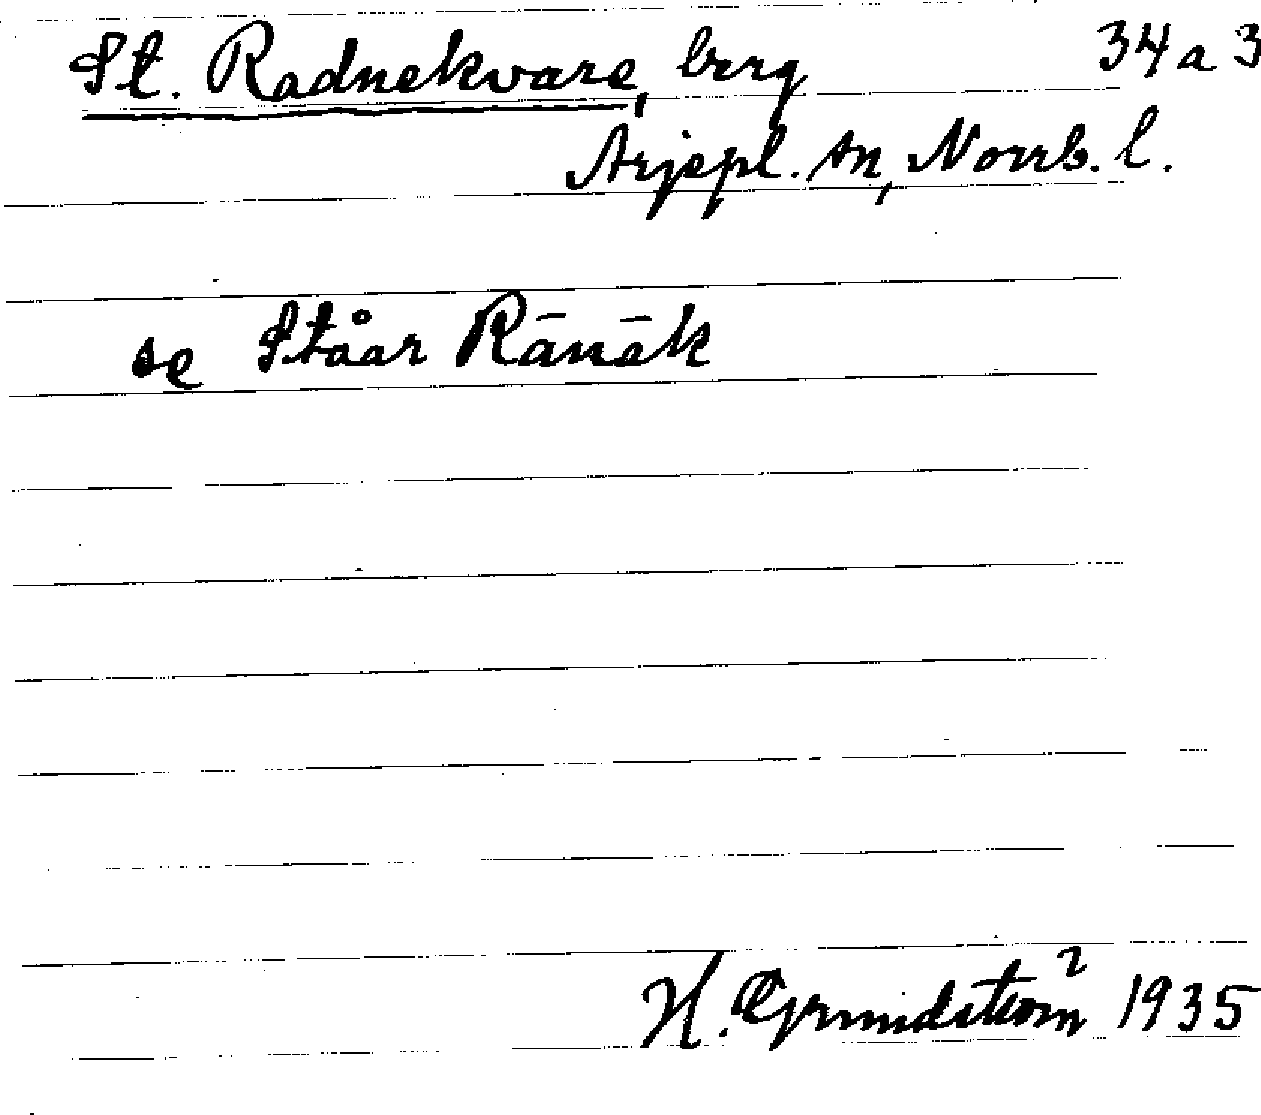 St. Radnekvare, berg 34 a 3
Arjepl. sn, Norrb. l.
se Ståar Rānāk
H. Grundström 1935